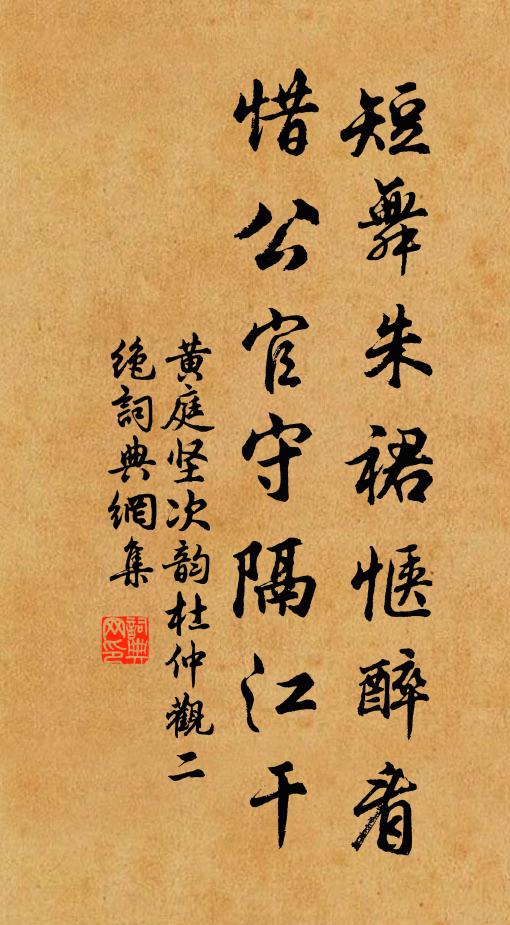 短舞朱裙惬醉看
惜公官守隔江干
黄庭坚次韵杜仲觀二
绝詞典網集
詞典
网印